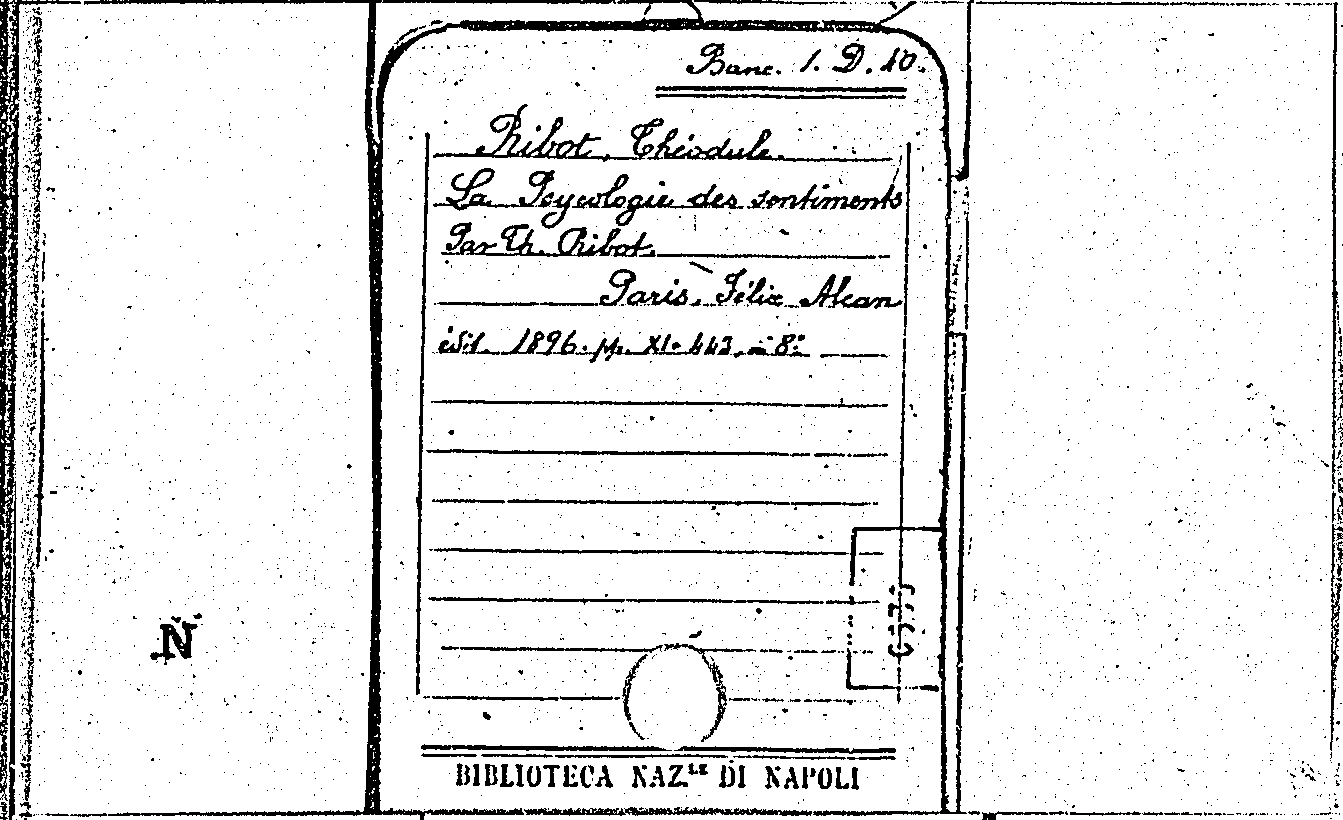 Banc. 1. D. 10.
Ribot, Théodule.
La Psycologie des sentiments
Par Th. Ribot.
Paris, Félix Alcan
édit. 1896. pp. XI. 443. in 8°
N
BIBLIOTECA NAZ.LE DI NAPOLI